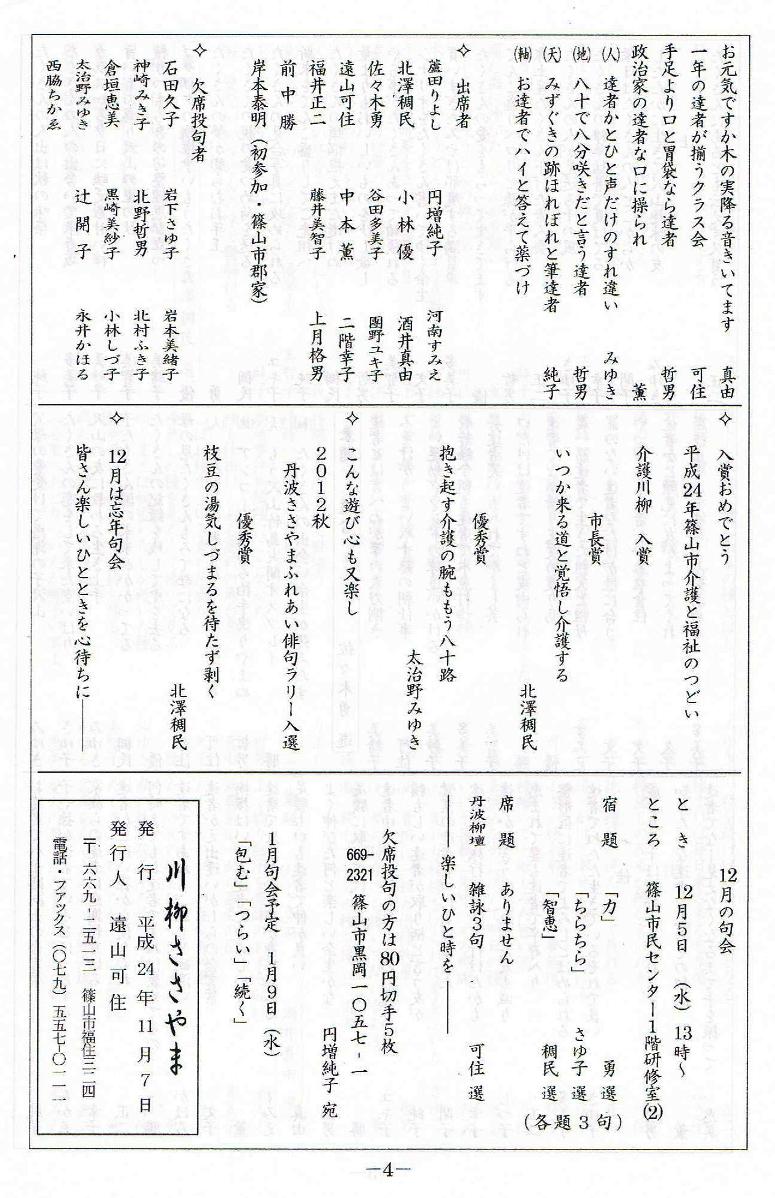 お元気ですか木の実降る音きいてます　真由
一年の達者が揃うクラス会　可住
手足より口と胃袋なら達者　哲男
政治家の達者な口に操られ　薫
(人)　達者かとひと声だけのすれ違い　みゆき
(地)　八十で八分咲きだと言う達者　哲男
(天)　みずぐきの跡ほれぼれと筆達者　純子
(軸)　お達者でハイと答えて薬づけ
✧　出席者
蘆田りよし　円増純子　河南すみえ
北澤稠民　小林優　酒井真由
佐々木勇　谷田多美子　團野ユキ子
遠山可住　中本薫　二階幸子
福井正二　藤井美智子　上月格男
前中勝
岸本泰明（初参加・篠山市郡家）
✧　欠席投句者
石田久子　岩下さゆ子　岩本美緒子
神崎みき子　北野哲男　北村ふき子
倉垣恵美　黒崎美紗子　小林しづ子
太治野みゆき　辻開子　永井かほる
西脇ちかゑ
✧　入賞おめでとう
平成24年篠山市介護と福祉のつどい
介護川柳　入賞
市長賞
いつか来る道と覚悟し介護する
北澤稠民
優秀賞
抱き起す介護の腕ももう八十路
太治野みゆき
✧　こんな遊び心も又楽し
2012秋
丹波ささやまふれあい俳句ラリー入選
優秀賞
枝豆の湯気しづまるを待たず剥く
北澤稠民
✧　12月は忘年句会
皆さん楽しいひとときを心待ちに――
12月の句会
とき　12月5日（水）13時～
ところ　篠山市民センター1階研修室(2)
宿題　「力」　勇選
「ちらちら」　さゆ子選
「智恵」　稠民選
（各題3句）
席題　ありません
丹波柳壇　雑詠3句　可住選
――楽しいひと時を――
欠席投句の方は80円切手5枚
669-2321　篠山市黒岡一〇五七-一
円増純子　宛
1月句会予定　1月9日（水）
「包む」「つらい」「続く」
川柳ささやま
発行　平成24年11月7日
発行人　遠山可住
〒六六九-二五一三　篠山市福住三二四
電話・ファックス（〇七九）五五七-〇一一一
―4―